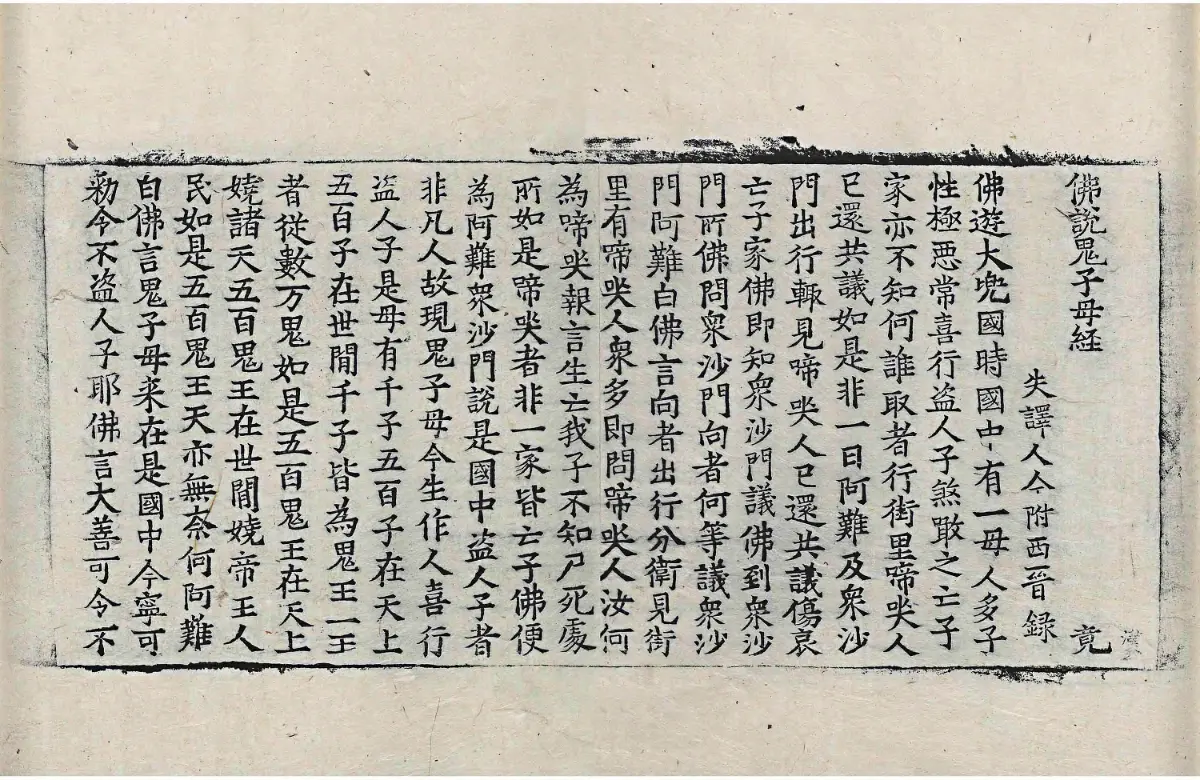 佛說鬼子母経 竟
失譯人今附西晉録
佛遊大兜國時國中有一母人多子
性極惡常喜行盜人子煞噉之亡子
家亦不知何誰取者行街里啼哭人
已還共議如是非一日阿難及衆沙
門出行輒見啼哭人已還共議傷哀
亡子家佛即知衆沙門議佛到衆沙
門所佛問衆沙門向者何等議衆沙
門阿難白佛言向者出行分衛見街
里有啼哭人衆多即問啼哭人汝何
為啼哭報言生亡我子不知尸死處
所如是啼哭者非一家皆亡子佛便
為阿難衆沙門說是國中盜人子者
非凡人故現鬼子母今生作人喜行
盜人子是母有千子五百子在天上
五百子在世閒千子皆為鬼王一王
者從數万鬼如是五百鬼王在天上
嬈諸天五百鬼王在世閒嬈帝王人
民如是五百鬼王天亦無奈何阿難
白佛言鬼子母来在是國中今寧可
勑令不盜人子耶佛言大善可令不